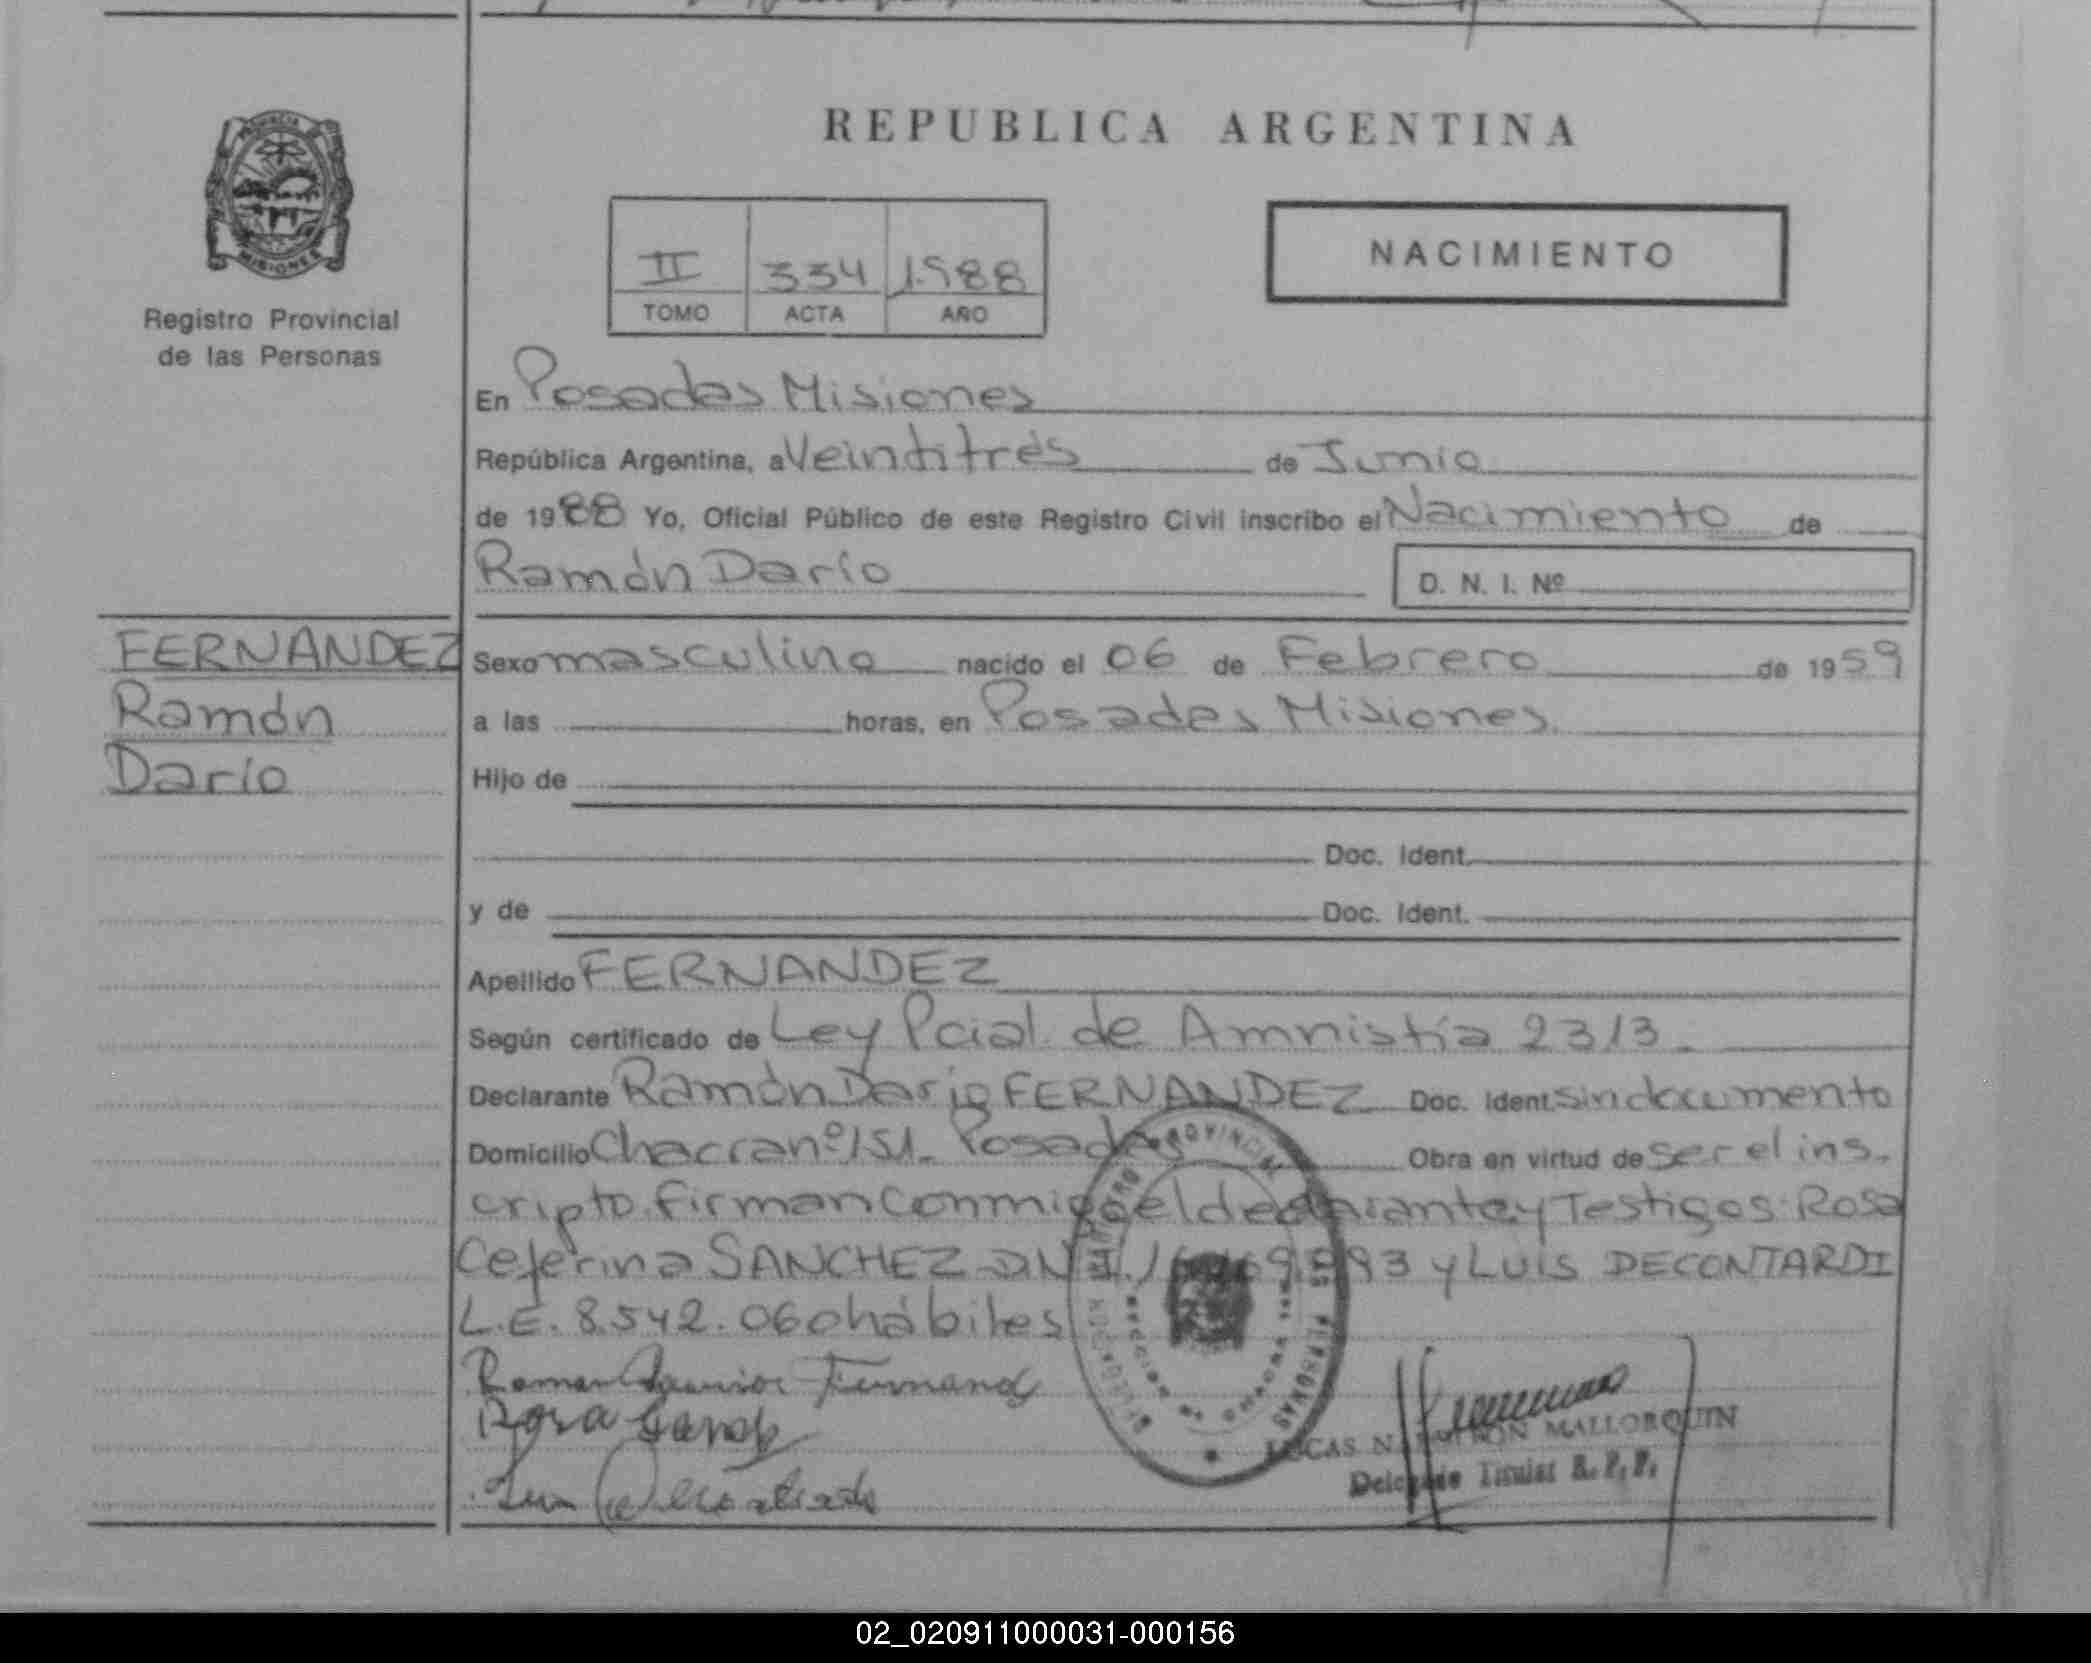 REPUBLICA ARGENTINA
PROVINCIA
MISIONES
Registro Provincial
de las Personas
II 334 1988
TOMO ACTA AÑO
NACIMIENTO
En Posadas Misiones
República Argentina, a Veintitrés de Junio
de 1988 Yo, Oficial Público de este Registro Civil inscribo el Nacimiento de
Ramón Darío D. N. I. Nº
FERNANDEZ
Ramón
Darío
Sexo masculino nacido el 06 de Febrero de 1959
a las horas, en Posadas Misiones
Hijo de
Doc. Ident.
y de Doc. Ident.
Apellido FERNANDEZ
Según certificado de Ley Pcial de Amnistía 2313.
Declarante Ramón Darío FERNANDEZ Doc. Ident. sin documento
Domicilio Chacra nº 151. Posadas Obra en virtud de ser el ins.
cripto. Firman Conmigo el declarante y Testigos: Rosa
Ceferina SANCHEZ DNI. y LUIS DECONTARDI
L.E. 8.542.060 hábiles
Rosa
LUCAS MALLORQUIN
Delegado Titular R. P. P.
02_020911000031-000156